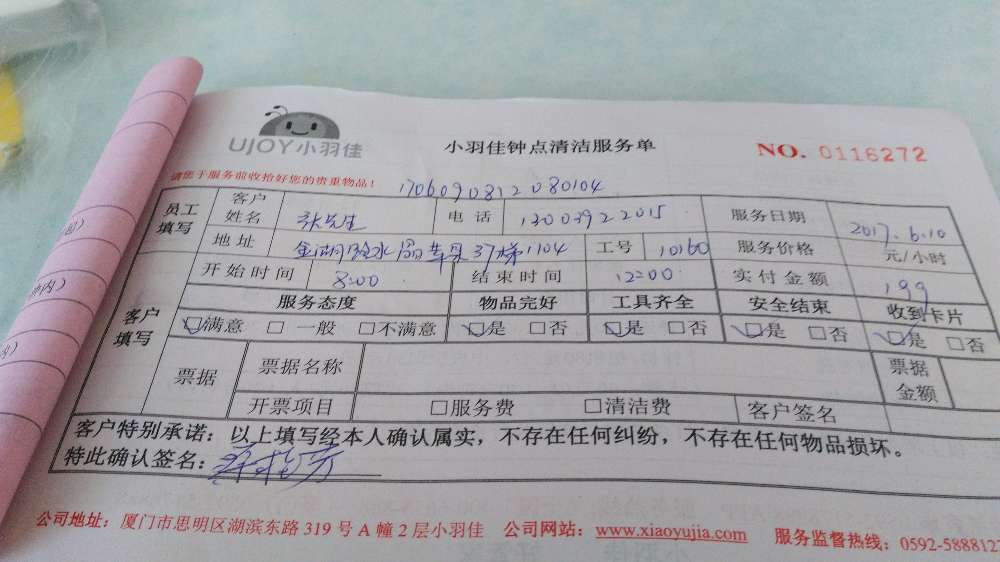 UJOY小羽佳
小羽佳钟点清洁服务单
NO. 0116272
请您于服务前收拾好您的贵重物品！
1706090812080104
员工填写 客户姓名 张先生 电话 13003922015 服务日期 2017.6.10
地址 37梯1104 工号 10160 服务价格 元/小时
开始时间 8:00 结束时间 12:00 实付金额 199
客户填写 服务态度 物品完好 工具齐全 安全结束 收到卡片
☑满意 □一般 □不满意 ☑是 □否 ☑是 □否 ☑是 □否 ☑是 □否
票据 票据名称 票据金额
开票项目 □服务费 □清洁费 客户签名
客户特别承诺：以上填写经本人确认属实，不存在任何纠纷，不存在任何物品损坏。
特此确认签名：
公司地址：厦门市思明区湖滨东路319号A幢2层小羽佳 公司网站：www.xiaoyujia.com 服务监督热线：0592-5888127